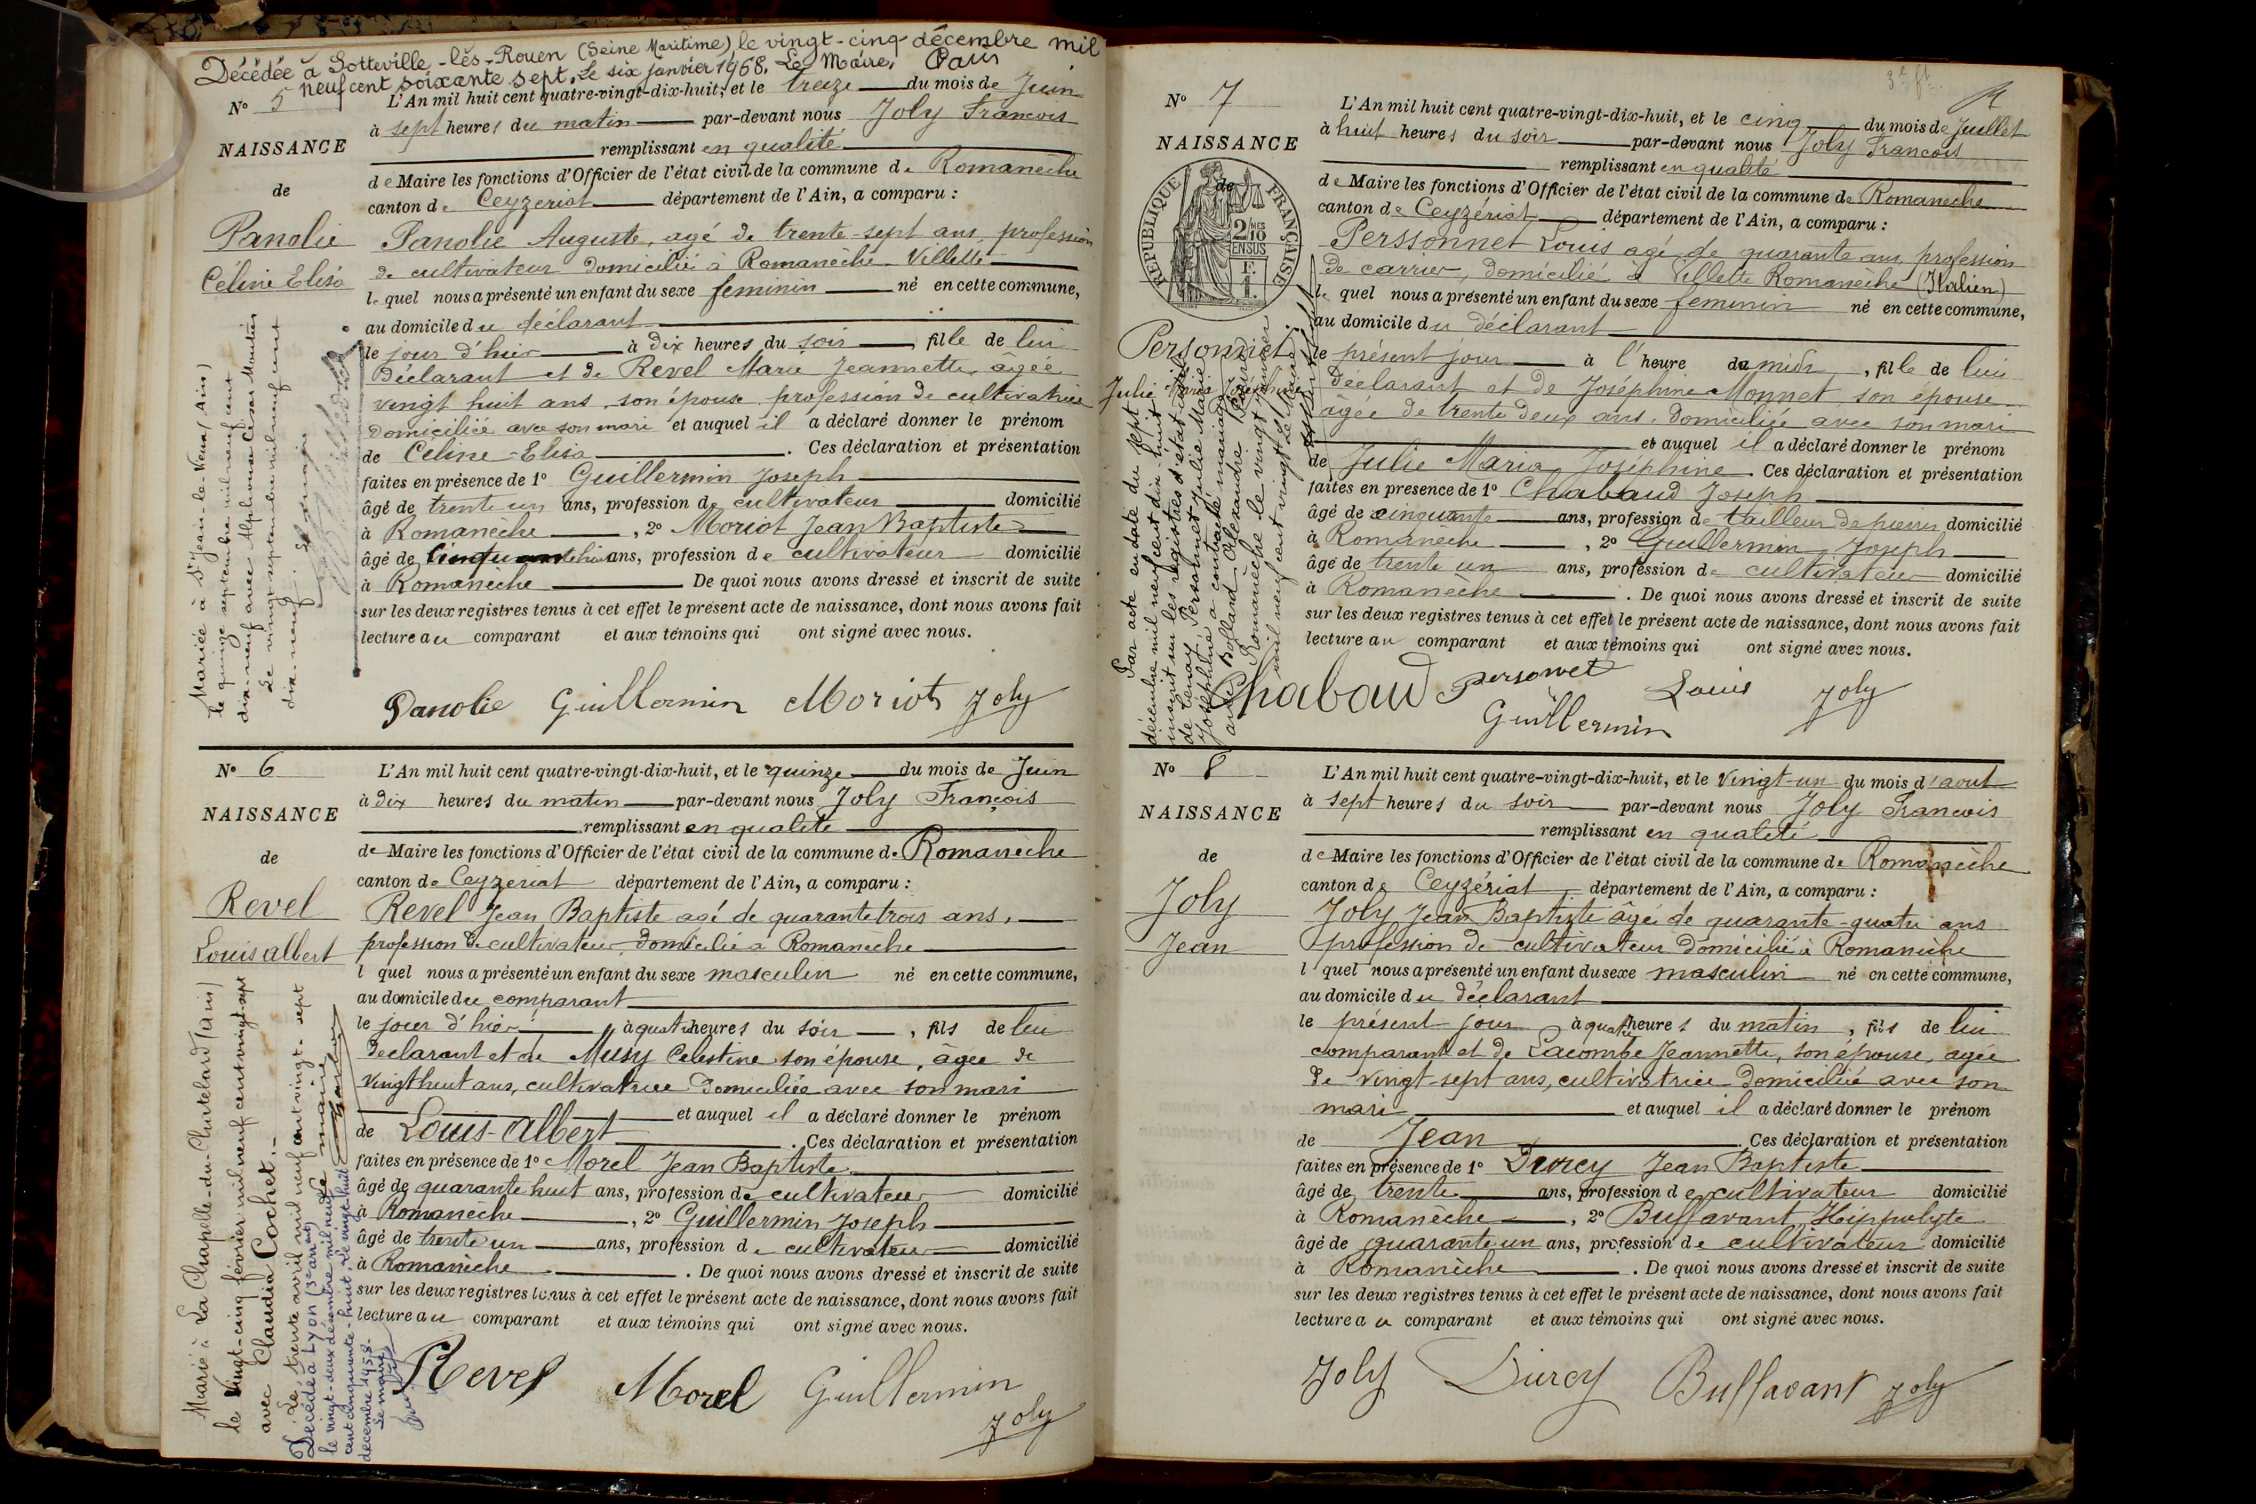 Décédée à Sotteville-lès-Rouen (Seine Maritime), le vingt-cinq décembre mil
neuf cent soixante sept. Le six janvier 1968. Le Maire, Paris
N° 5
NAISSANCE
de
Panolie
Céline Elisa
Mariée à St Jean-le-Vieux (Ain)
le quinze septembre mil neuf cent
dix-neuf avec Alphonse César
Le vingt septembre mil neuf cent
dix-neuf. Le maire
L'An mil huit cent quatre-vingt-dix-huit, et le treize du mois de Juin
à sept heures du matin par-devant nous Joly Francois
remplissant en qualité
de Maire les fonctions d'Officier de l'état civil de la commune de Romanèche
canton de Ceyzeriat département de l'Ain, a comparu :
Panolie Auguste, agé de trente-sept ans, profession
de cultivateur domicilié à Romanèche Villette
lequel nous a présenté un enfant du sexe feminin né en cette commune,
au domicile du déclarant
le jour d'hier à dix heures du soir, fille de lui
Déclarant et de Revel Marie Jeannette, âgée
vingt huit ans, son épouse, profession de cultivatrice
domiciliée avec son mari et auquel il a déclaré donner le prénom
de Céline-Elisa. Ces déclaration et présentation
faites en présence de 1° Guillermin Joseph
âgé de trente un ans, profession de cultivateur domicilié
à Romanèche, 2° Moriot Jean Baptiste
âgé de ans, profession de cultivateur domicilié
à Romanèche De quoi nous avons dressé et inscrit de suite
sur les deux registres tenus à cet effet le présent acte de naissance, dont nous avons fait
lecture au comparant et aux témoins qui ont signé avec nous.
Panolie Guillermin Moriot Joly
N° 6
NAISSANCE
de
Revel
Louis albert
Marié à La Chapelle-du-Chatelard (ain)
le vingt-cinq février mil neuf cent vingt-sept
avec Claudia Cochet.
Le, trente avril mil neuf cent vingt-sept
Le maire
Décédé à Lyon (3e arrt)
le vingt-deux décembre mil neuf
cent cinquante-huit. Le vingt-huit
décembre 1958.
Le maire
L'An mil huit cent quatre-vingt-dix-huit, et le quinze du mois de Juin
à dix heures du matin par-devant nous Joly François
remplissant en qualité
de Maire les fonctions d'Officier de l'état civil de la commune de Romanèche
canton de Ceyzeriat département de l'Ain, a comparu :
Revel Jean Baptiste agé de quarante trois ans,
profession de cultivateur domicilié à Romanèche
l quel nous a présenté un enfant du sexe masculin né en cette commune,
au domicile du comparant
le jour d'hier à quatre heures du soir, fils de lui
déclarant et de Musy Celestine son épouse, âgée de
vingt huit ans, cultivatrice domiciliée avec son mari
et auquel il a déclaré donner le prénom
de Louis-Albert. Ces déclaration et présentation
faites en présence de 1° Morel Jean Baptiste
âgé de quarante huit ans, profession de cultivateur domicilié
à Romanèche, 2° Guillermin Joseph
âgé de trente un ans, profession de cultivateur domicilié
à Romanèche. De quoi nous avons dressé et inscrit de suite
sur les deux registres tenus à cet effet le présent acte de naissance, dont nous avons fait
lecture au comparant et aux témoins qui ont signé avec nous.
Revel Morel Guillermin
Joly
N° 7
NAISSANCE
de
RÉPUBLIQUE FRANÇAISE
2/10
EN SUS
Personnet
Julie Maria Joséphine
Par acte en date du sept
décembre mil neuf cent dix-huit
inscrit sur les registres d'état civil
de Tenay Personnet Julie Marie
Joséphine a contracté mariage
avec Ballard Alexandre
Romanèche le vingt
mil neuf cent vingt. Le Maire
L'An mil huit cent quatre-vingt-dix-huit, et le cinq du mois de Juillet
à huit heures du soir par-devant nous Joly Francois
remplissant en qualité
de Maire les fonctions d'Officier de l'état civil de la commune de Romanèche
canton de Ceyzériat département de l'Ain, a comparu :
Perssonnet Louis agé de quarante ans, profession
de carrier, domicilié à Villette Romanèche (Italien)
le quel nous a présenté un enfant du sexe feminin né en cette commune,
au domicile du déclarant
le présent jour à l'heure de midi, fille de lui
déclarant et de Joséphine Monnet, son épouse
âgée de trente deux ans. domiciliée avec son mari
et auquel il a déclaré donner le prénom
de Julie Maria Joséphine. Ces déclaration et présentation
faites en présence de 1° Chabaud Joseph
âgé de cinquante ans, profession de tailleur de pierres domicilié
à Romanèche, 2° Guillermin Joseph
âgé de trente un ans, profession de cultivateur domicilié
à Romanèche. De quoi nous avons dressé et inscrit de suite
sur les deux registres tenus à cet effet le présent acte de naissance, dont nous avons fait
lecture au comparant et aux témoins qui ont signé avec nous.
Chabaud Personnet Louis Joly
Guillermin
N° 8
NAISSANCE
de
Joly
Jean
L'An mil huit cent quatre-vingt-dix-huit, et le vingt-un du mois d'aout
à sept heures du soir par-devant nous Joly Francois
remplissant en qualité
de Maire les fonctions d'Officier de l'état civil de la commune de Romanèche
canton de Ceyzériat département de l'Ain, a comparu :
Joly Jean Baptiste âgé de quarante-quatre ans
profession de cultivateur domicilié à Romanèche
l quel nous a présenté un enfant du sexe masculin né en cette commune,
au domicile du déclarant
le présent jour à quatre heures du matin, fils de lui
comparant et de Lacombe Jeannette, son épouse, agée
de vingt-sept ans, cultivatrice domiciliée avec son
mari et auquel il a déclaré donner le prénom
de Jean. Ces déclaration et présentation
faites en présence de 1° Durcy Jean Baptiste
âgé de trente ans, profession de cultivateur domicilié
à Romanèche, 2° Buffavant Hippolyte
âgé de quarante un ans, profession de cultivateur domicilié
à Romanèche. De quoi nous avons dressé et inscrit de suite
sur les deux registres tenus à cet effet le présent acte de naissance, dont nous avons fait
lecture au comparant et aux témoins qui ont signé avec nous.
Joly Durcy Buffavant Joly